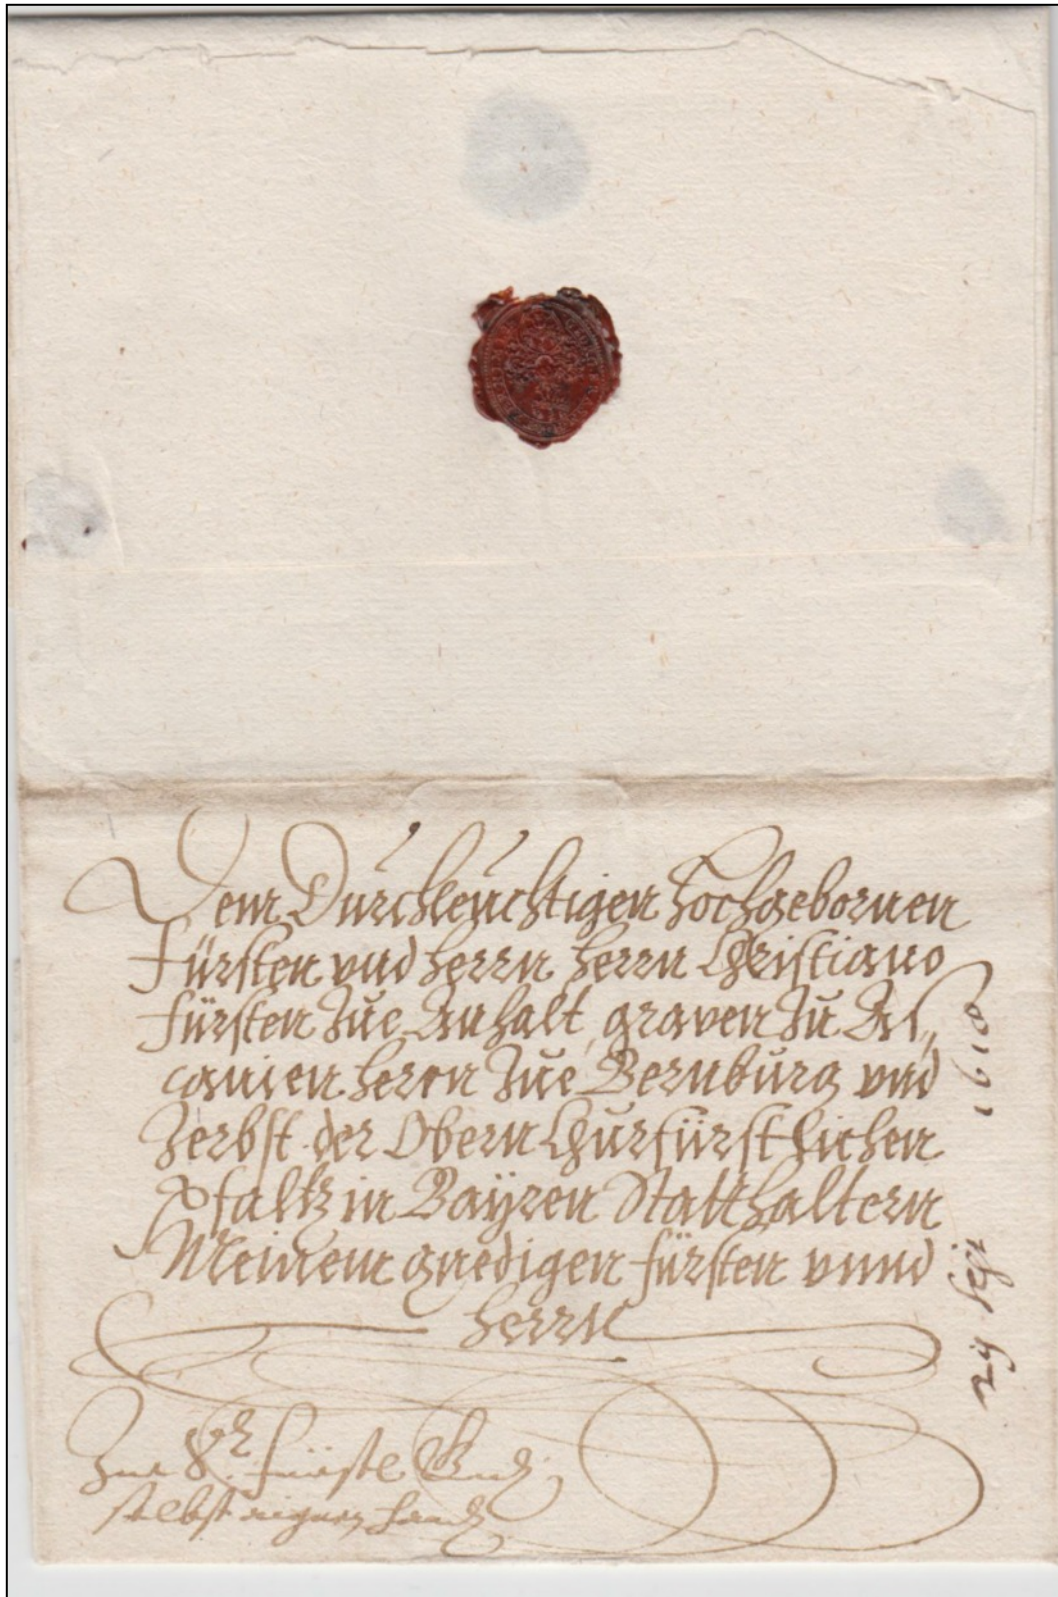 Dem Durchleuchtigen Hochgebornen
Fürsten vnd Herrn Herrn Christiano
Fürsten Zue Anhalt, graven Zu As,,
canien Herrn Zue Bernburg vnd
Zerbst der Obern Churfürstlichen
Pfaltz in Bayren Statthaltern
Meinem gnedigen Fürsten vnnd
Herrn
Zue Fürstl Gnd.
selbst eignen Hand
1610
29 Sept